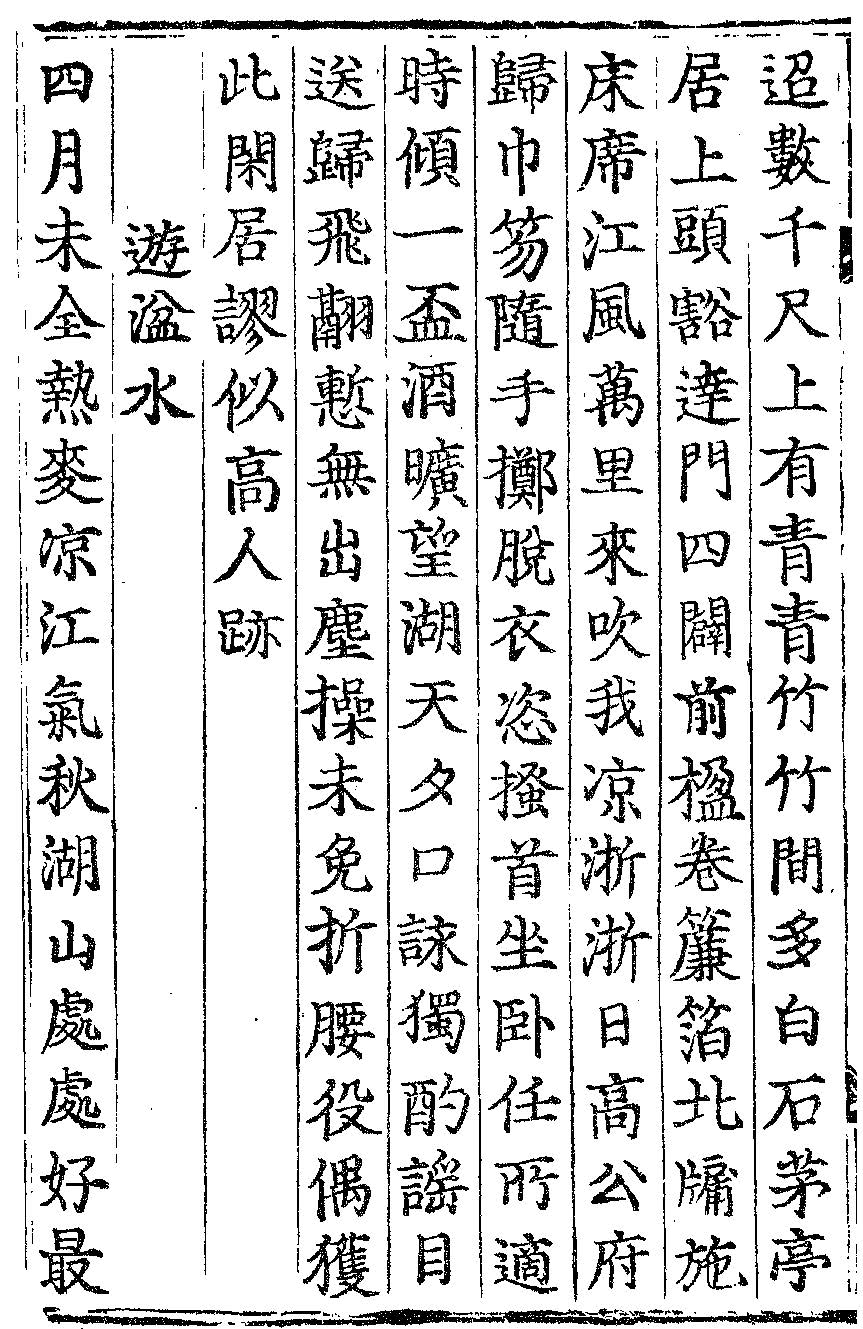 迢數千尺上有青青竹竹間多白石茅亭
居上頭豁達門四闢前楹卷簾箔北牖施
床席江風萬里來吹我凉淅淅日高公府
歸巾笏隨手擲脫衣恣搔首坐卧任所適
時傾一盃酒曠望湖天夕口詠獨酌謡目
送歸飛翮慙無出塵操未免折腰役偶獲
此閑居謬似高人跡
遊湓水
四月未全熱麥凉江氣秋湖山處處好最